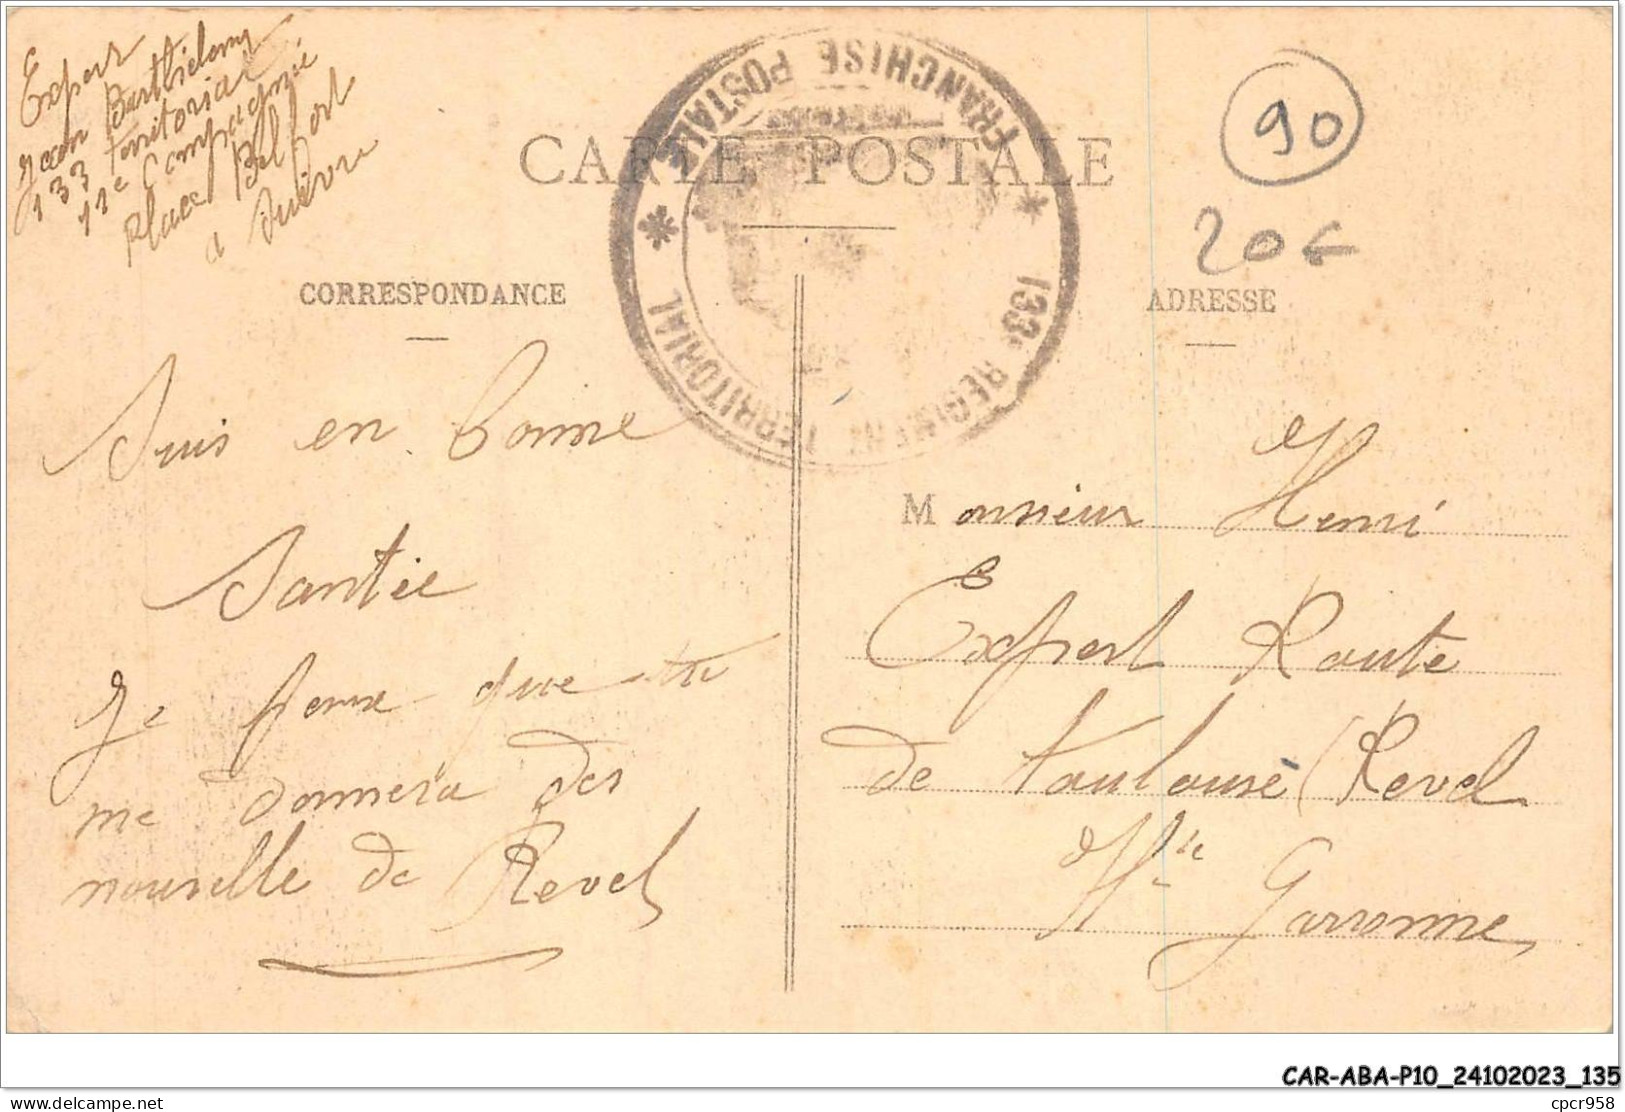 Expert
Jean Barthelemy
133 Territorial
11e Compagnie
Place Belfort
a Suivre
CARTE POSTALE
* FRANCHISE POSTALE *
133e REGIMENT TERRITORIAL
90
20€
CORRESPONDANCE
Suis en bonne
Santée
Je pence que tu
me donnera des
nouvelle de Revel
ADRESSE
Monsieur Henri
Expert Route
de Toulouse (Revel
Hte Garonne
CAR-ABA-P10_24102023_135
delcampe.net
cpcr958